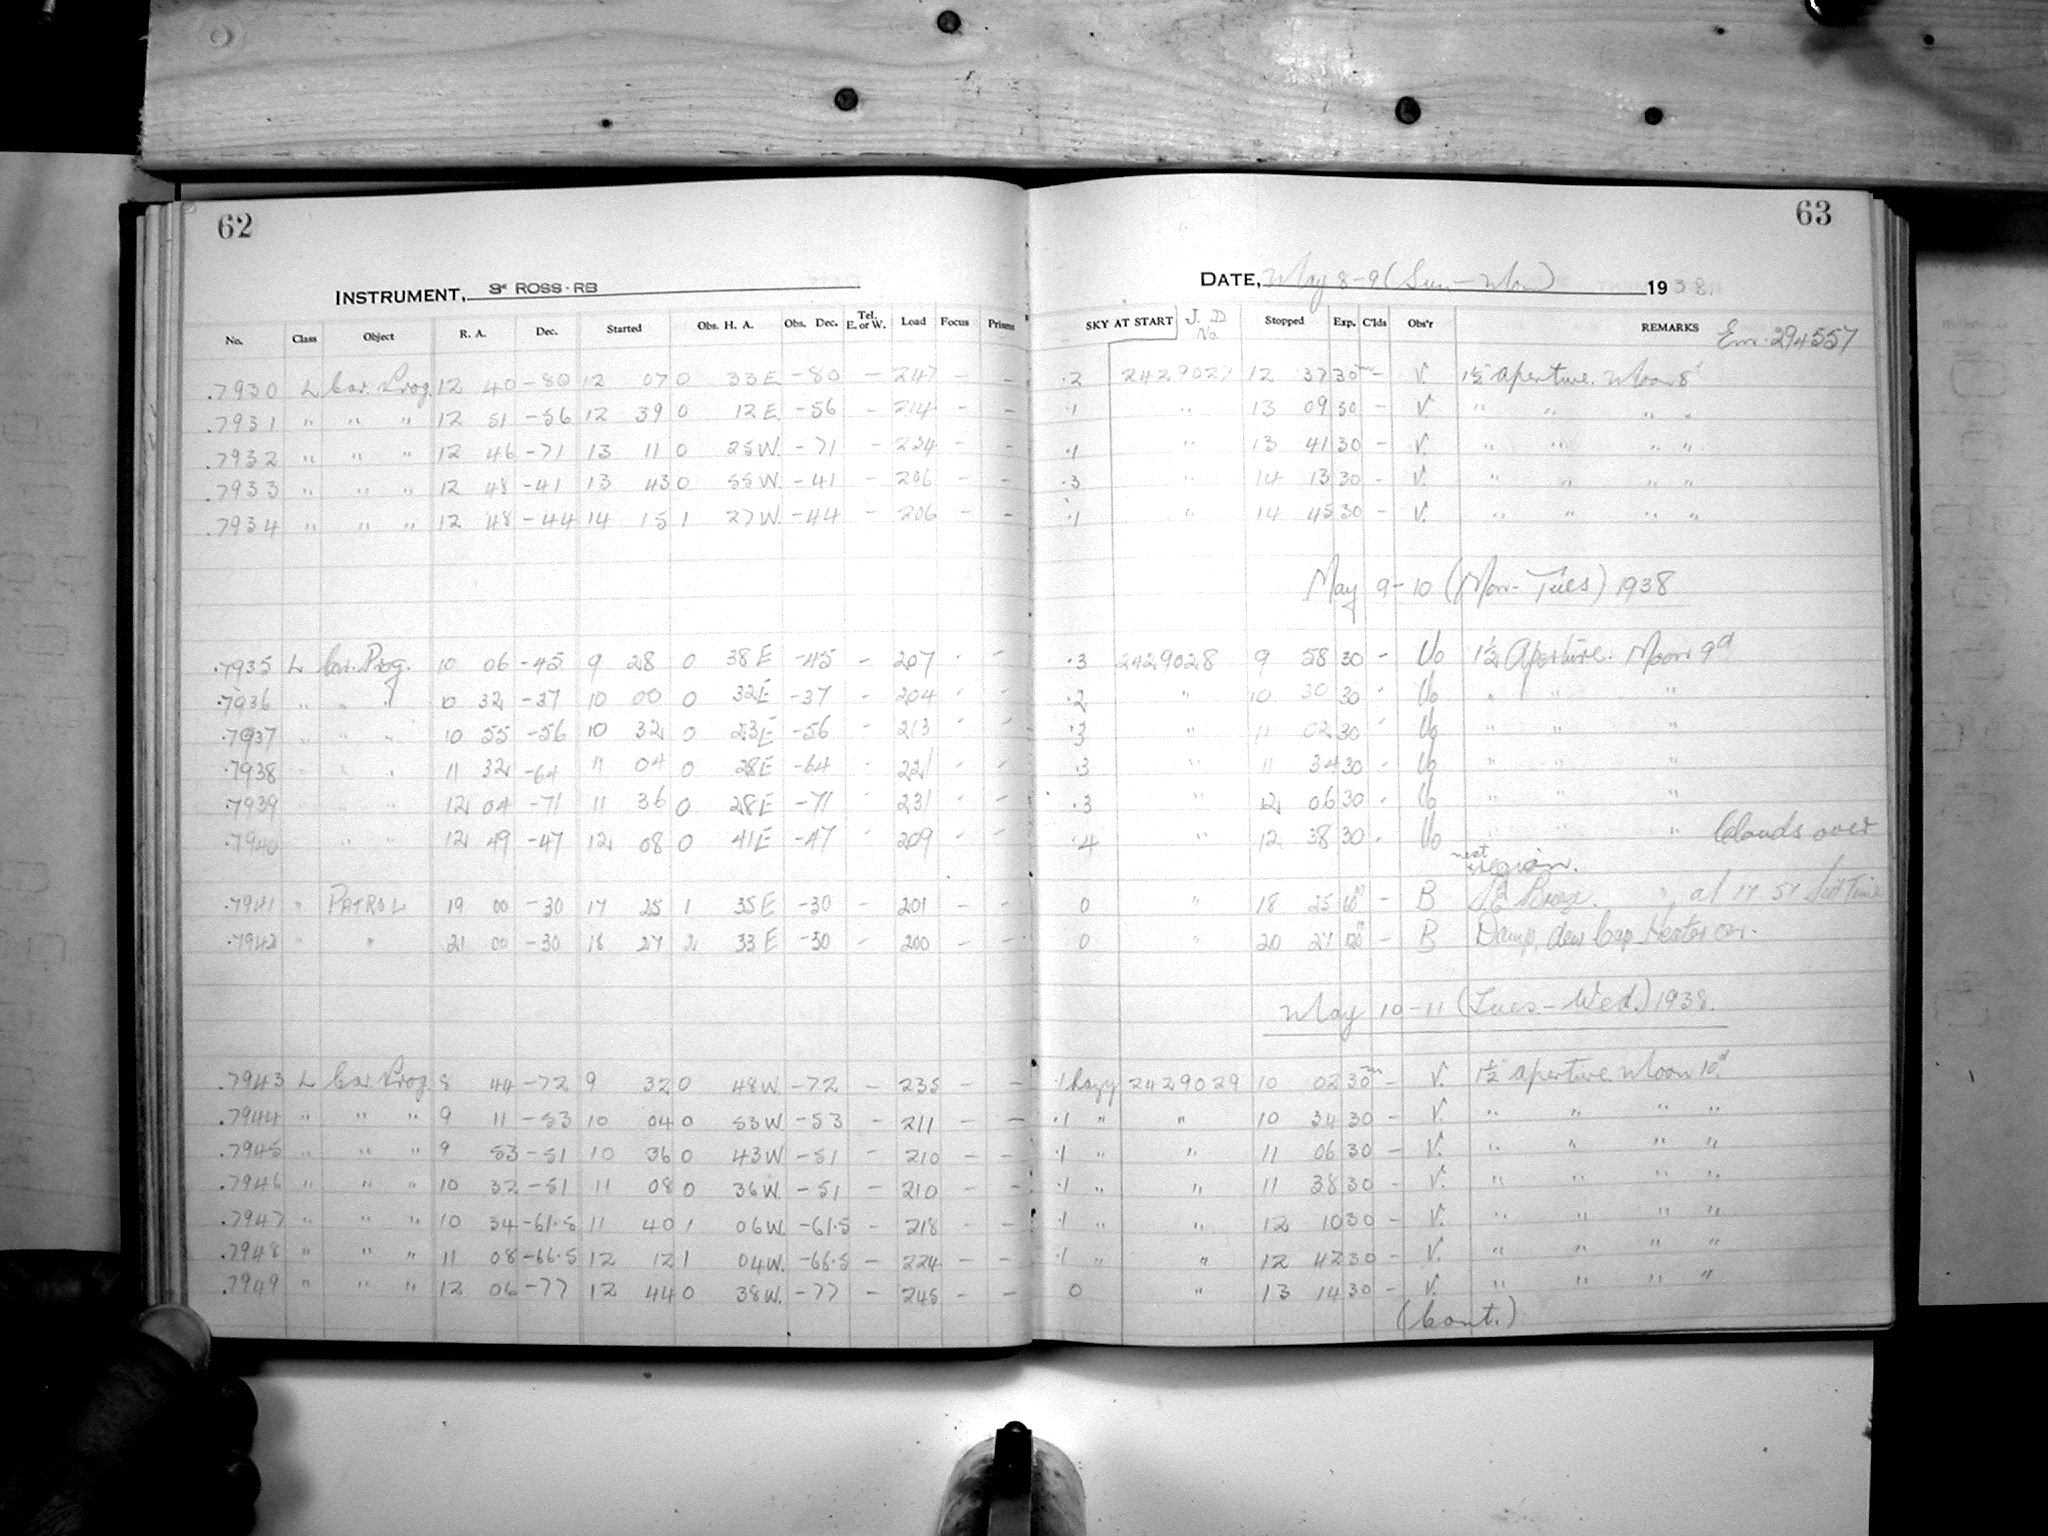 62
63
INSTRUMENT, 3" ROSS-RB
DATE, May 8-9 (Sun-Mon) 1938.
No. Class Object R. A. Dec. Started Obs. H. A. Obs. Dec. Tel. E. or W. Load Focus Prisms SKY AT START J. D No. Stopped Exp. C'lds Obs'r REMARKS Em. 294557
.7930 L Car. Prog. 12 40 -80 12 07 0 33E. -80 - 247 - - .2 2429027 12 37 30m - V. 1½" aperture. Moon 8d
.7931 " " " 12 51 -56 12 39 0 12E. -56 - 214 - - .1 " 13 09 30 - V. " " " "
.7932 " " " 12 46 -71 13 11 0 25W. -71 - 234 - - .1 " 13 41 30 - V. " " " "
.7933 " " " 12 48 -41 13 43 0 55W. -41 - 206 - - .3 " 14 13 30 - V. " " " "
.7934 " " " 12 48 -44 14 15 1 27W. -44 - 206 - - .1 " 14 45 30 - V. " " " "
May 9-10 (Mon-Tues) 1938
.7935 L Car. Prog. 10 06 -45 9 28 0 38E -45 - 207 - - .3 2429028 9 58 30 - Uo 1½ Aperture. Moon 9d
.7936 " " " 10 32 -37 10 00 0 32E -37 - 204 - - .2 " 10 30 30 - Uo " " "
.7937 " " " 10 55 -56 10 32 0 23E -56 - 213 - - .3 " 11 02 30 - Uo " " "
.7938 " " " 11 32 -64 11 04 0 28E -64 - 221 - - .3 " 11 34 30 - Uo " " "
.7939 " " " 12 04 -71 11 36 0 28E -71 - 231 - - .3 " 12 06 30 - Uo " " "
.7940 " " 12 49 -47 12 08 0 41E -47 - 209 - - .4 " 12 38 30 - Uo " " " Clouds over
next region.
.7941 " PATROL 19 00 -30 17 25 1 35E -30 - 201 - - 0 " 18 25 60m - B SE Breeze. " at 17 57 Sid Time
.7942 " " 21 00 -30 18 27 2 33E -30 - 200 - - 0 " 20 27 120m - B Damp, dew Cap Heater on.
May 10-11 (Tues-Wed.) 1938.
.7943 L Car Prog. 8 44 -72 9 32 0 48W. -72 - 235 - - .1 hazy 2429029 10 02 30m - V. 1½" aperture Moon 10d
.7944 " " " 9 11 -53 10 04 0 53W. -53 - 211 - - .1 " " 10 34 30 - V. " " " "
.7945 " " " 9 53 -51 10 36 0 43W -51 - 210 - - .1 " " 11 06 30 - V. " " " "
.7946 " " " 10 32 -51 11 08 0 36W. -51 - 210 - - .1 " " 11 38 30 - V. " " " "
.7947 " " " 10 34 -61.5 11 40 1 06W. -61.5 - 218 - - .1 " " 12 10 30 - V. " " " "
.7948 " " " 11 08 -66.5 12 12 1 04W. -66.5 - 224 - - .1 " " 12 42 30 - V. " " " "
.7949 " " " 12 06 -77 12 44 0 38W. -77 - 245 - - 0 " 13 14 30 - V. " " " "
(Cont.)